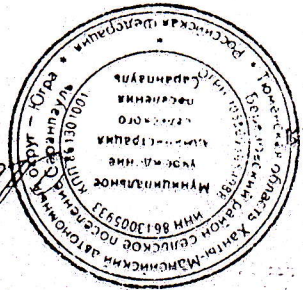 Российская Федерация * Тюменская область Ханты-Мансийский автономный округ – Югра *
Березовский район сельское поселение Саранпауль
ИНН 8613005933 КПП 861301001
Муниципальное
учреждение
администрация
сельского
поселения
Саранпауль